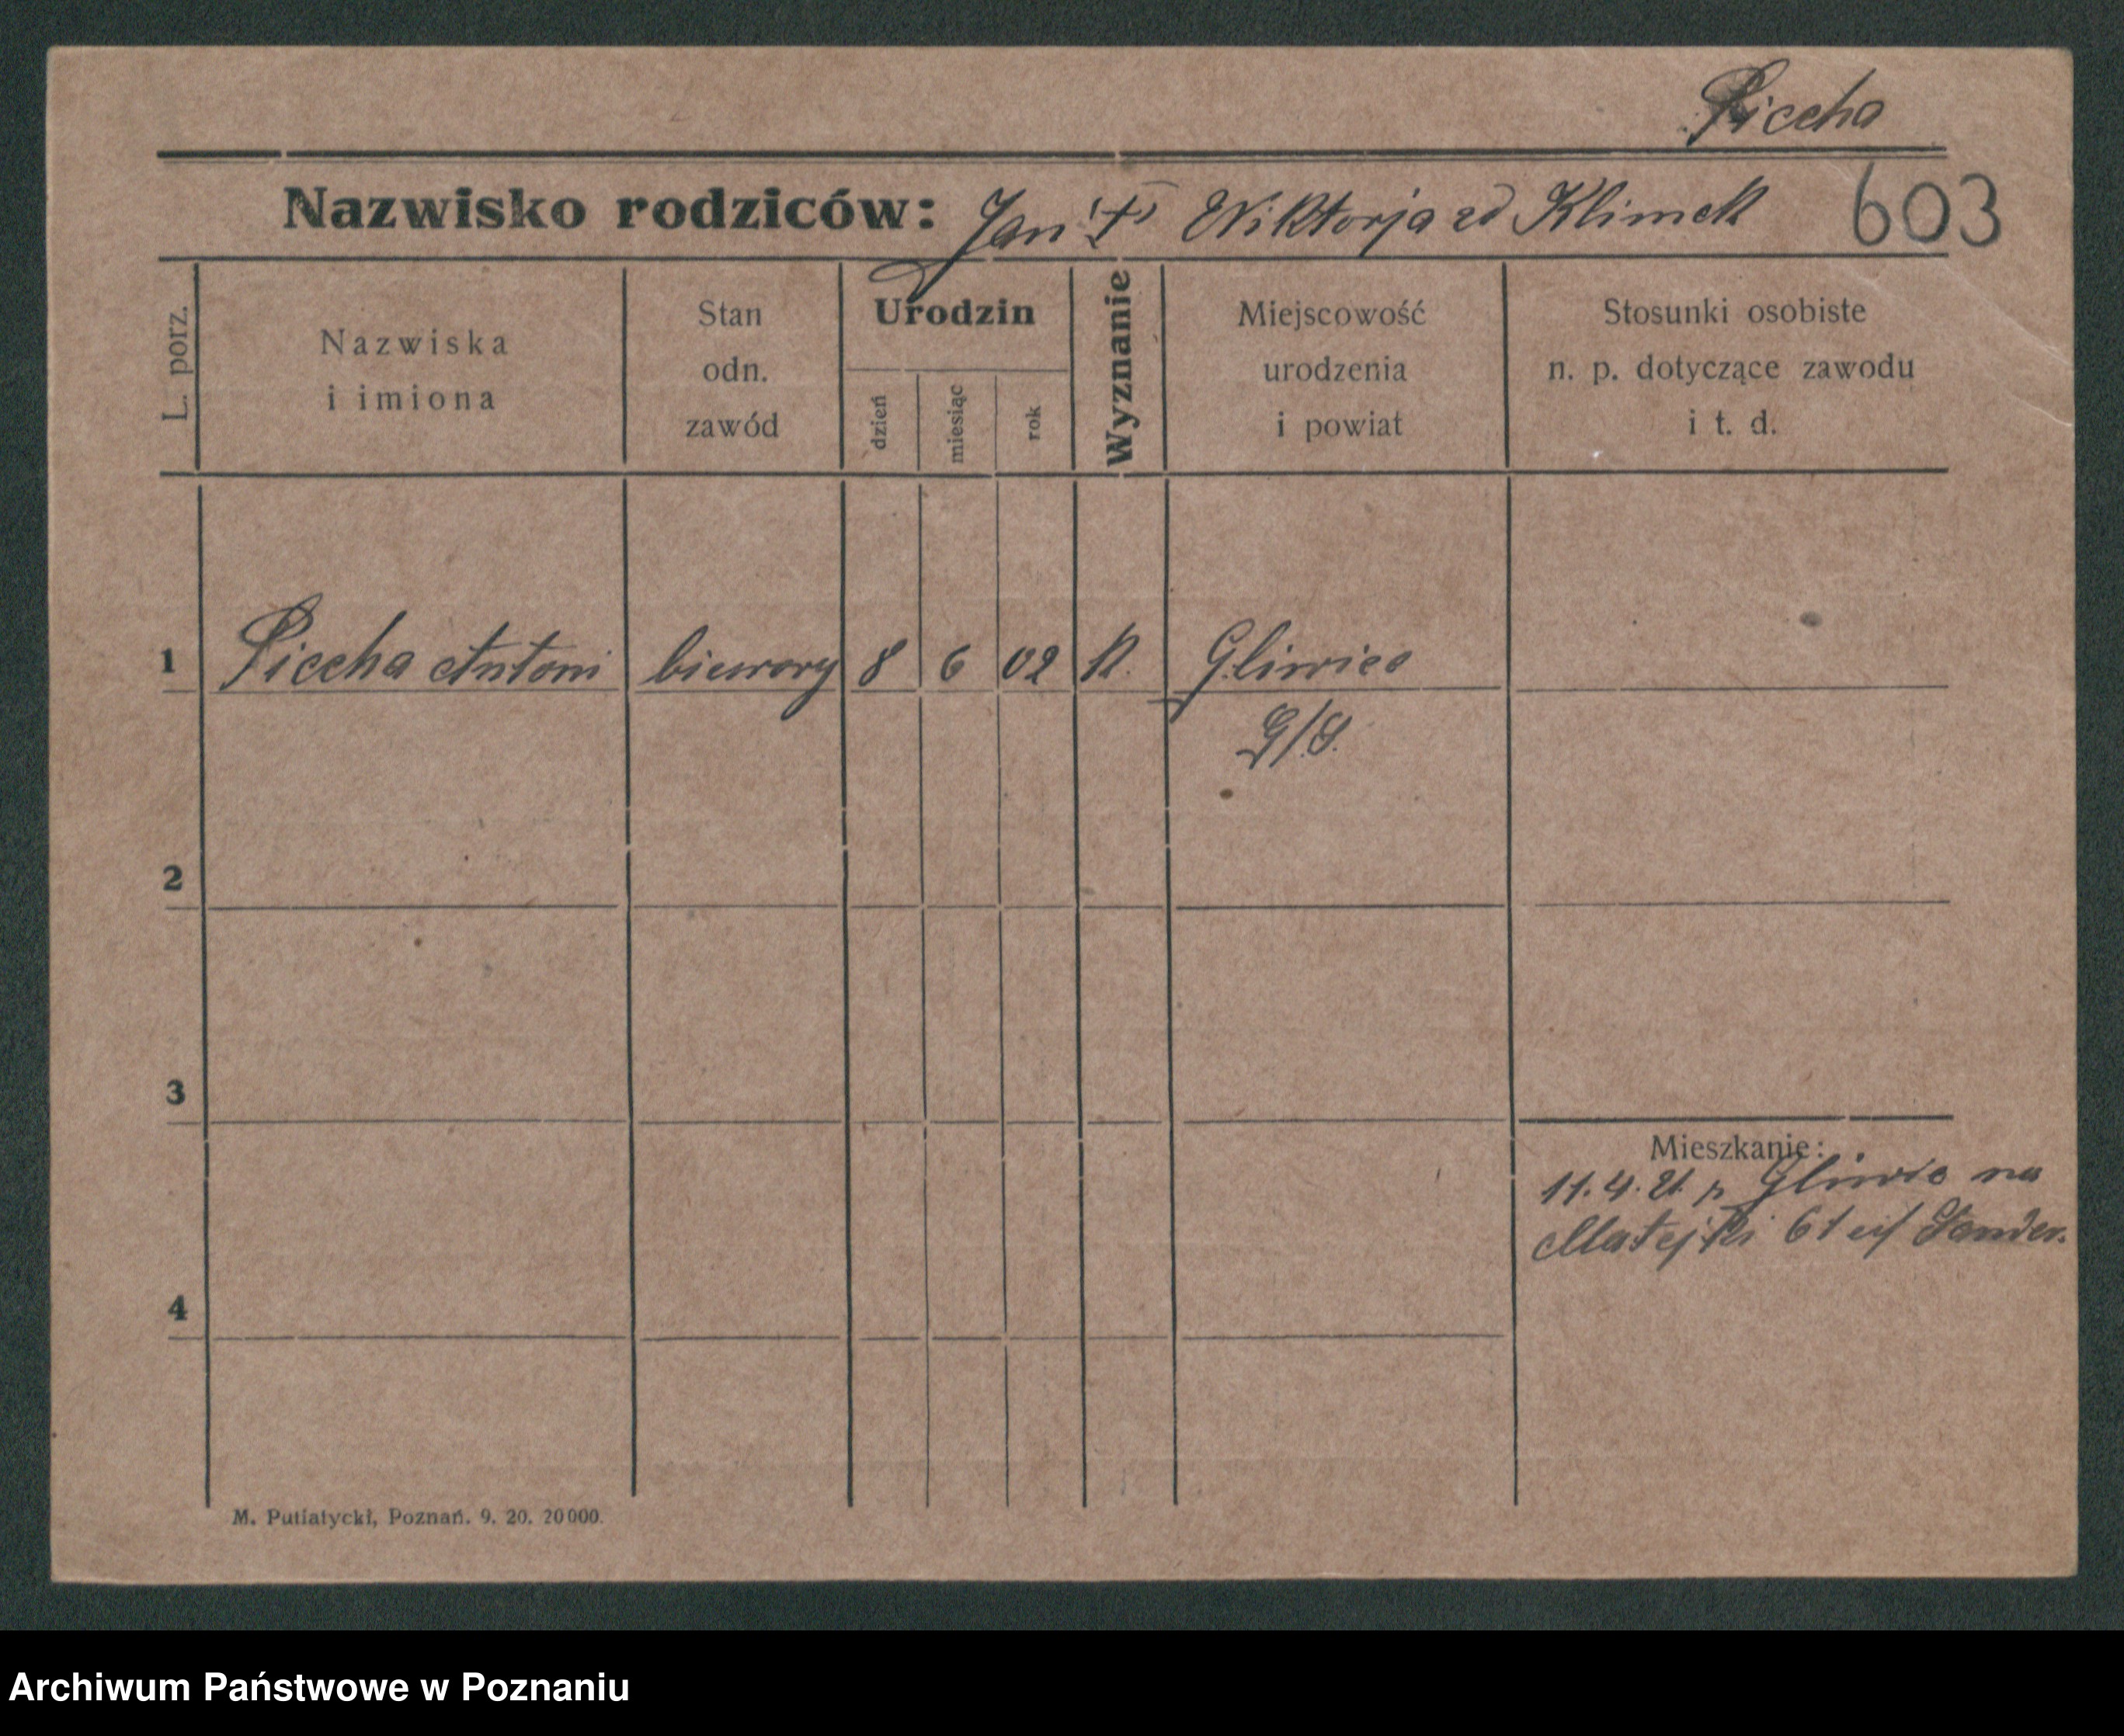 Piecha
Nazwisko rodziców: Jan "†" Wiktorja zd Klimek 603
L. porz.
Nazwiska
i imiona
Stan
odn.
zawód
Urodzin
dzień
miesiąc
rok
Wyznanie
Miejscowość
urodzenia
i powiat
Stosunki osobiste
n. p. dotyczące zawodu
i t. d.
1 Piecha Antoni biurowy 8 6 02 K. Gliwice
G/S.
2
3
Mieszkanie:
11.4.21. p Gliwic na
Matejki 61
4
M. Putiatycki, Poznań. 9. 20. 20000.
Archiwum Państwowe w Poznaniu